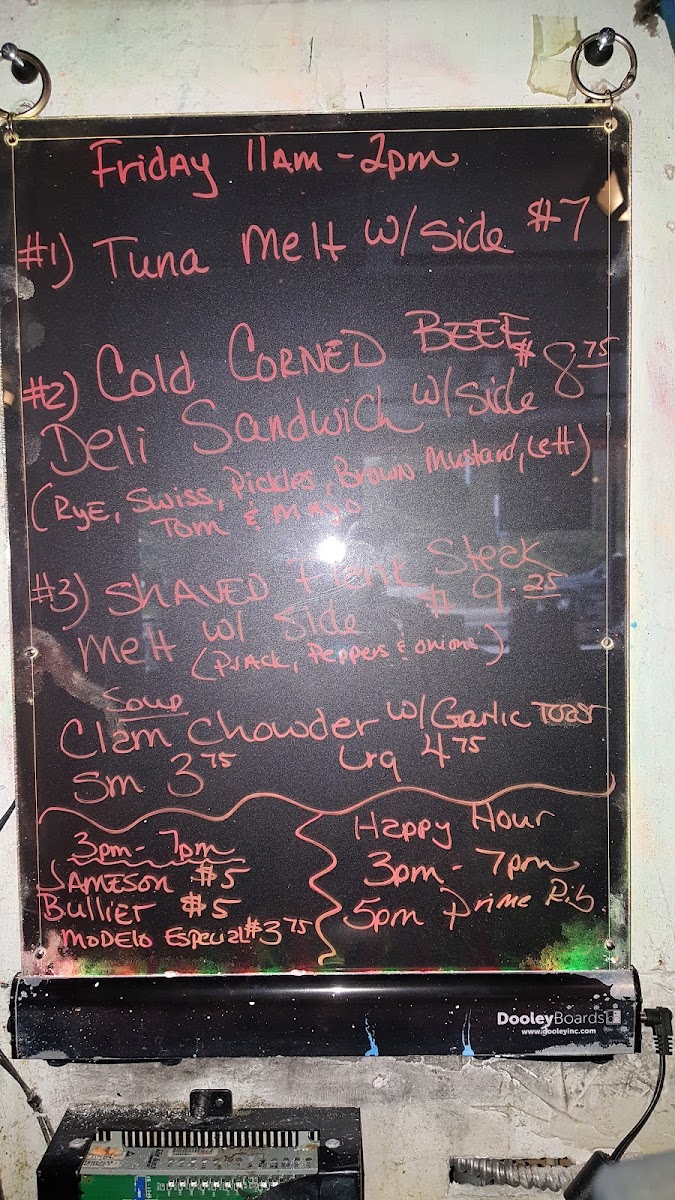 Friday 11AM - 2pm
#1) Tuna Melt w/ side $7
#2) Cold CORNED BEEF
Deli Sandwich w/ side $8.75
(RYE, Swiss, Pickles, Brown Mustard, Lett)
Tom & Mayo
#3) SHAVED Flank Steak
Melt w/ Side $9.25
(PJACK, Peppers & onions)
Soup
Clam Chowder w/ Garlic TOAST
Sm 3.75 Lrg 4.75
3pm - 7pm
JAMESON $5
Bulliet $5
MODELO ESPECIAL $3.75
Happy Hour
3pm - 7pm
5pm Prime Rib
DooleyBoards
www.dooleyinc.com